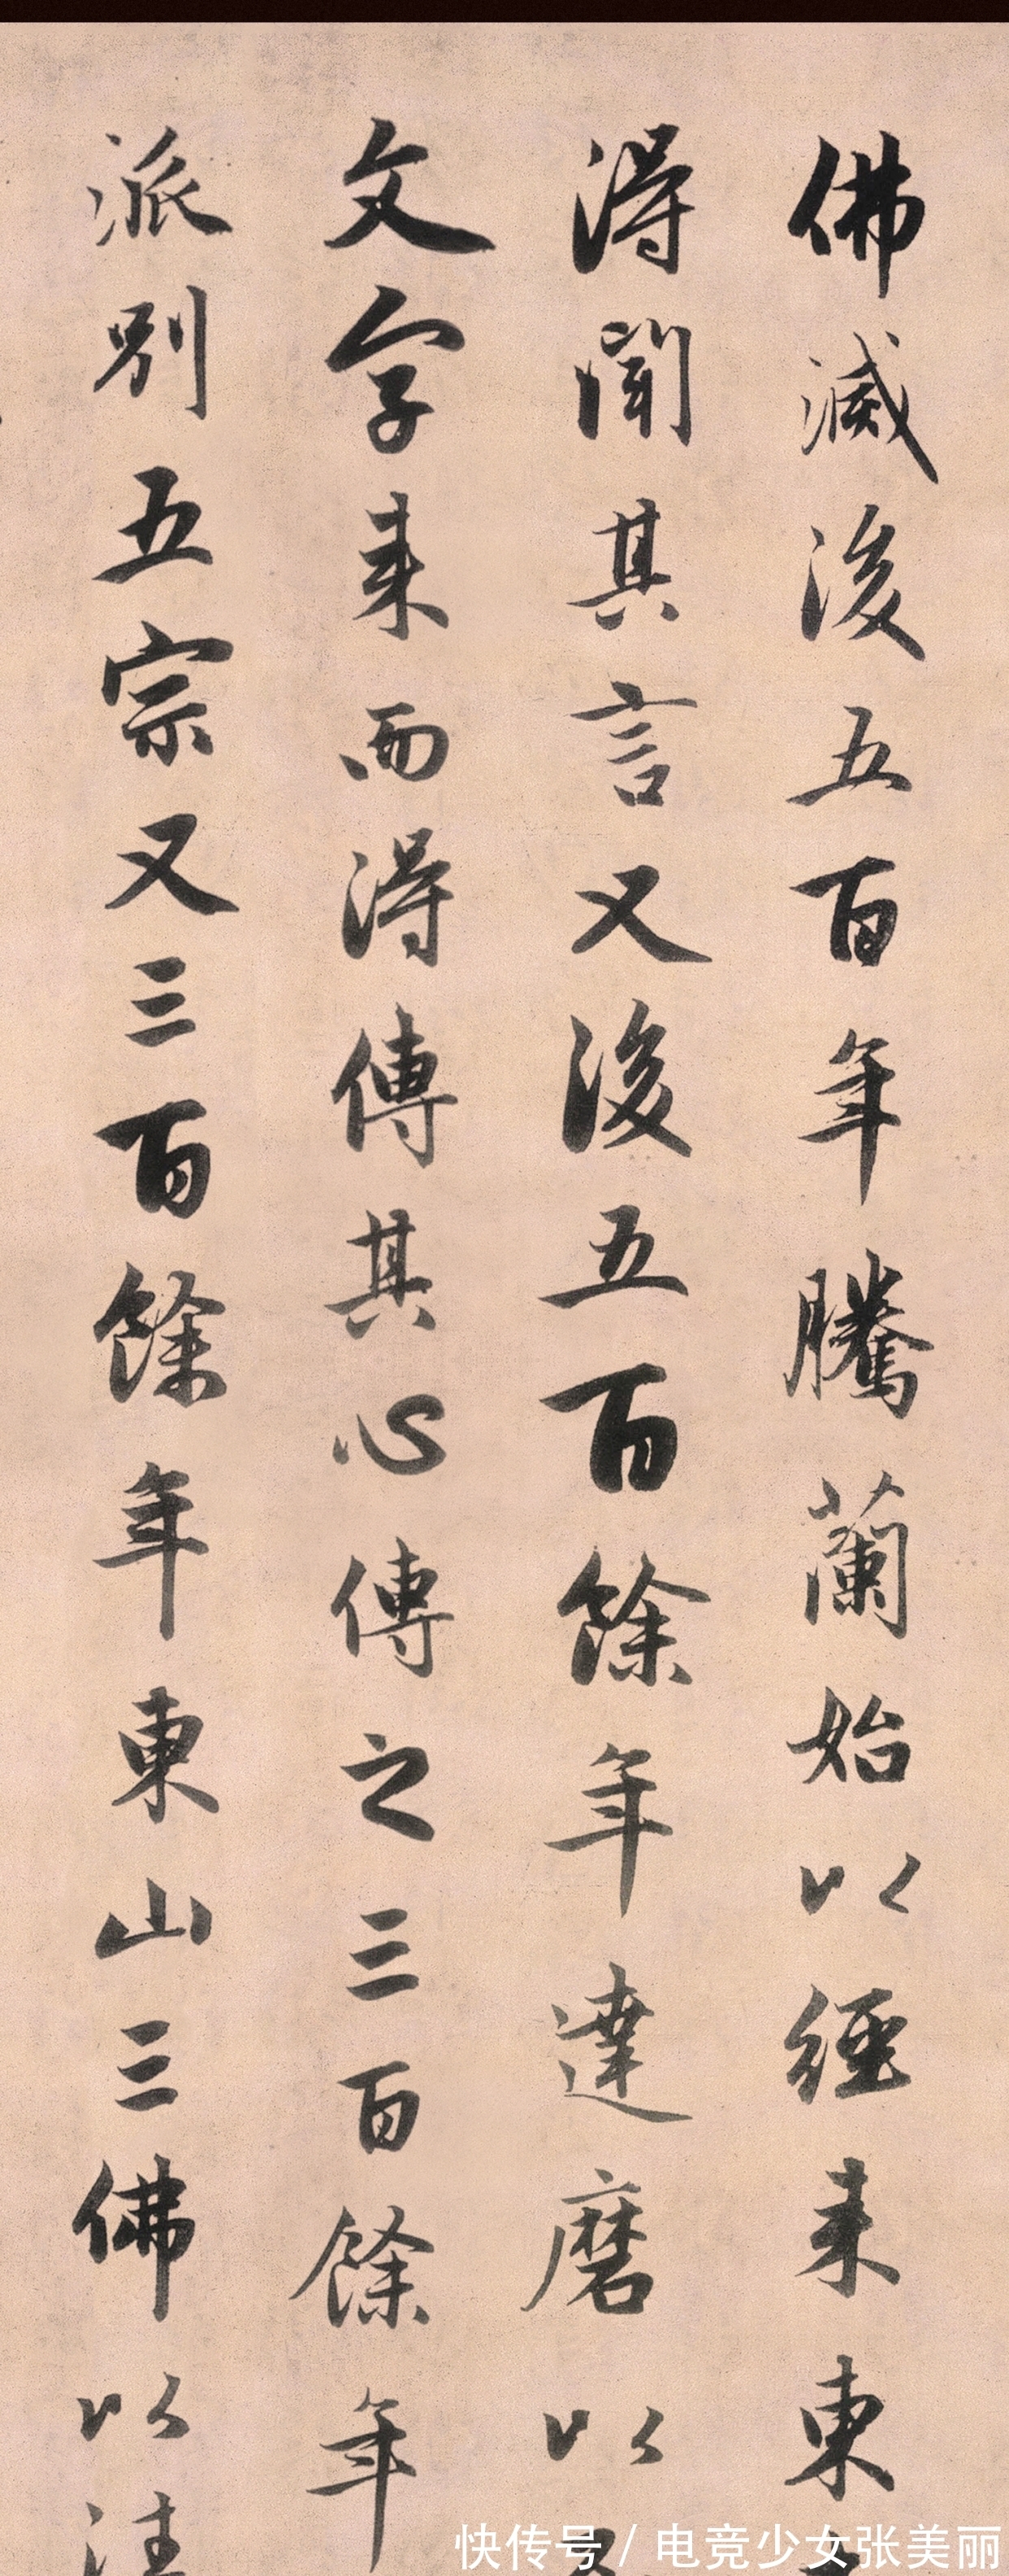 佛滅後五百年騰蘭始以經来東
得聞其言又後五百餘年達磨以
文字来而得傳其心傳之三百餘年
派別五宗又三百餘年東山三佛以
快传号 / 电竞少女张美丽